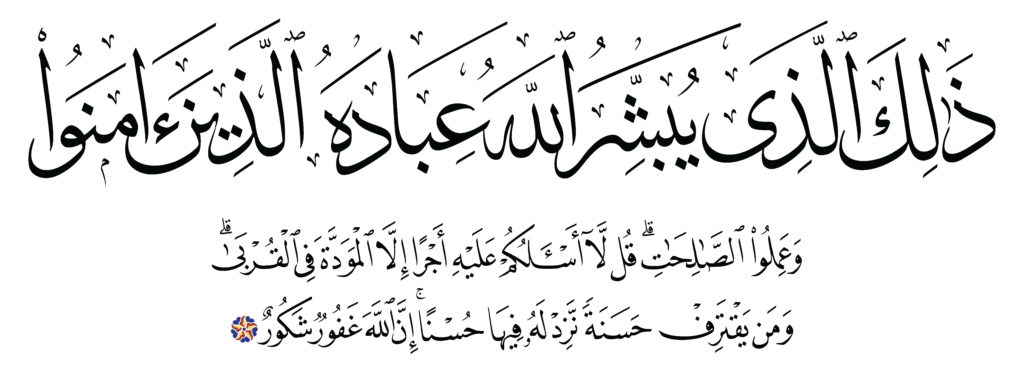 ذَٰلِكَ ٱلَّذِى يُبَشِّرُ ٱللَّهُ عِبَادَهُ ٱلَّذِينَ ءَامَنُوا۟
وَعَمِلُوا۟ ٱلصَّـٰلِحَـٰتِ ۗ قُل لَّآ أَسْـَٔلُكُمْ عَلَيْهِ أَجْرًا إِلَّا ٱلْمَوَدَّةَ فِى ٱلْقُرْبَىٰ ۗ
وَمَن يَقْتَرِفْ حَسَنَةً نَّزِدْ لَهُۥ فِيهَا حُسْنًا ۚ إِنَّ ٱللَّهَ غَفُورٌ شَكُورٌ